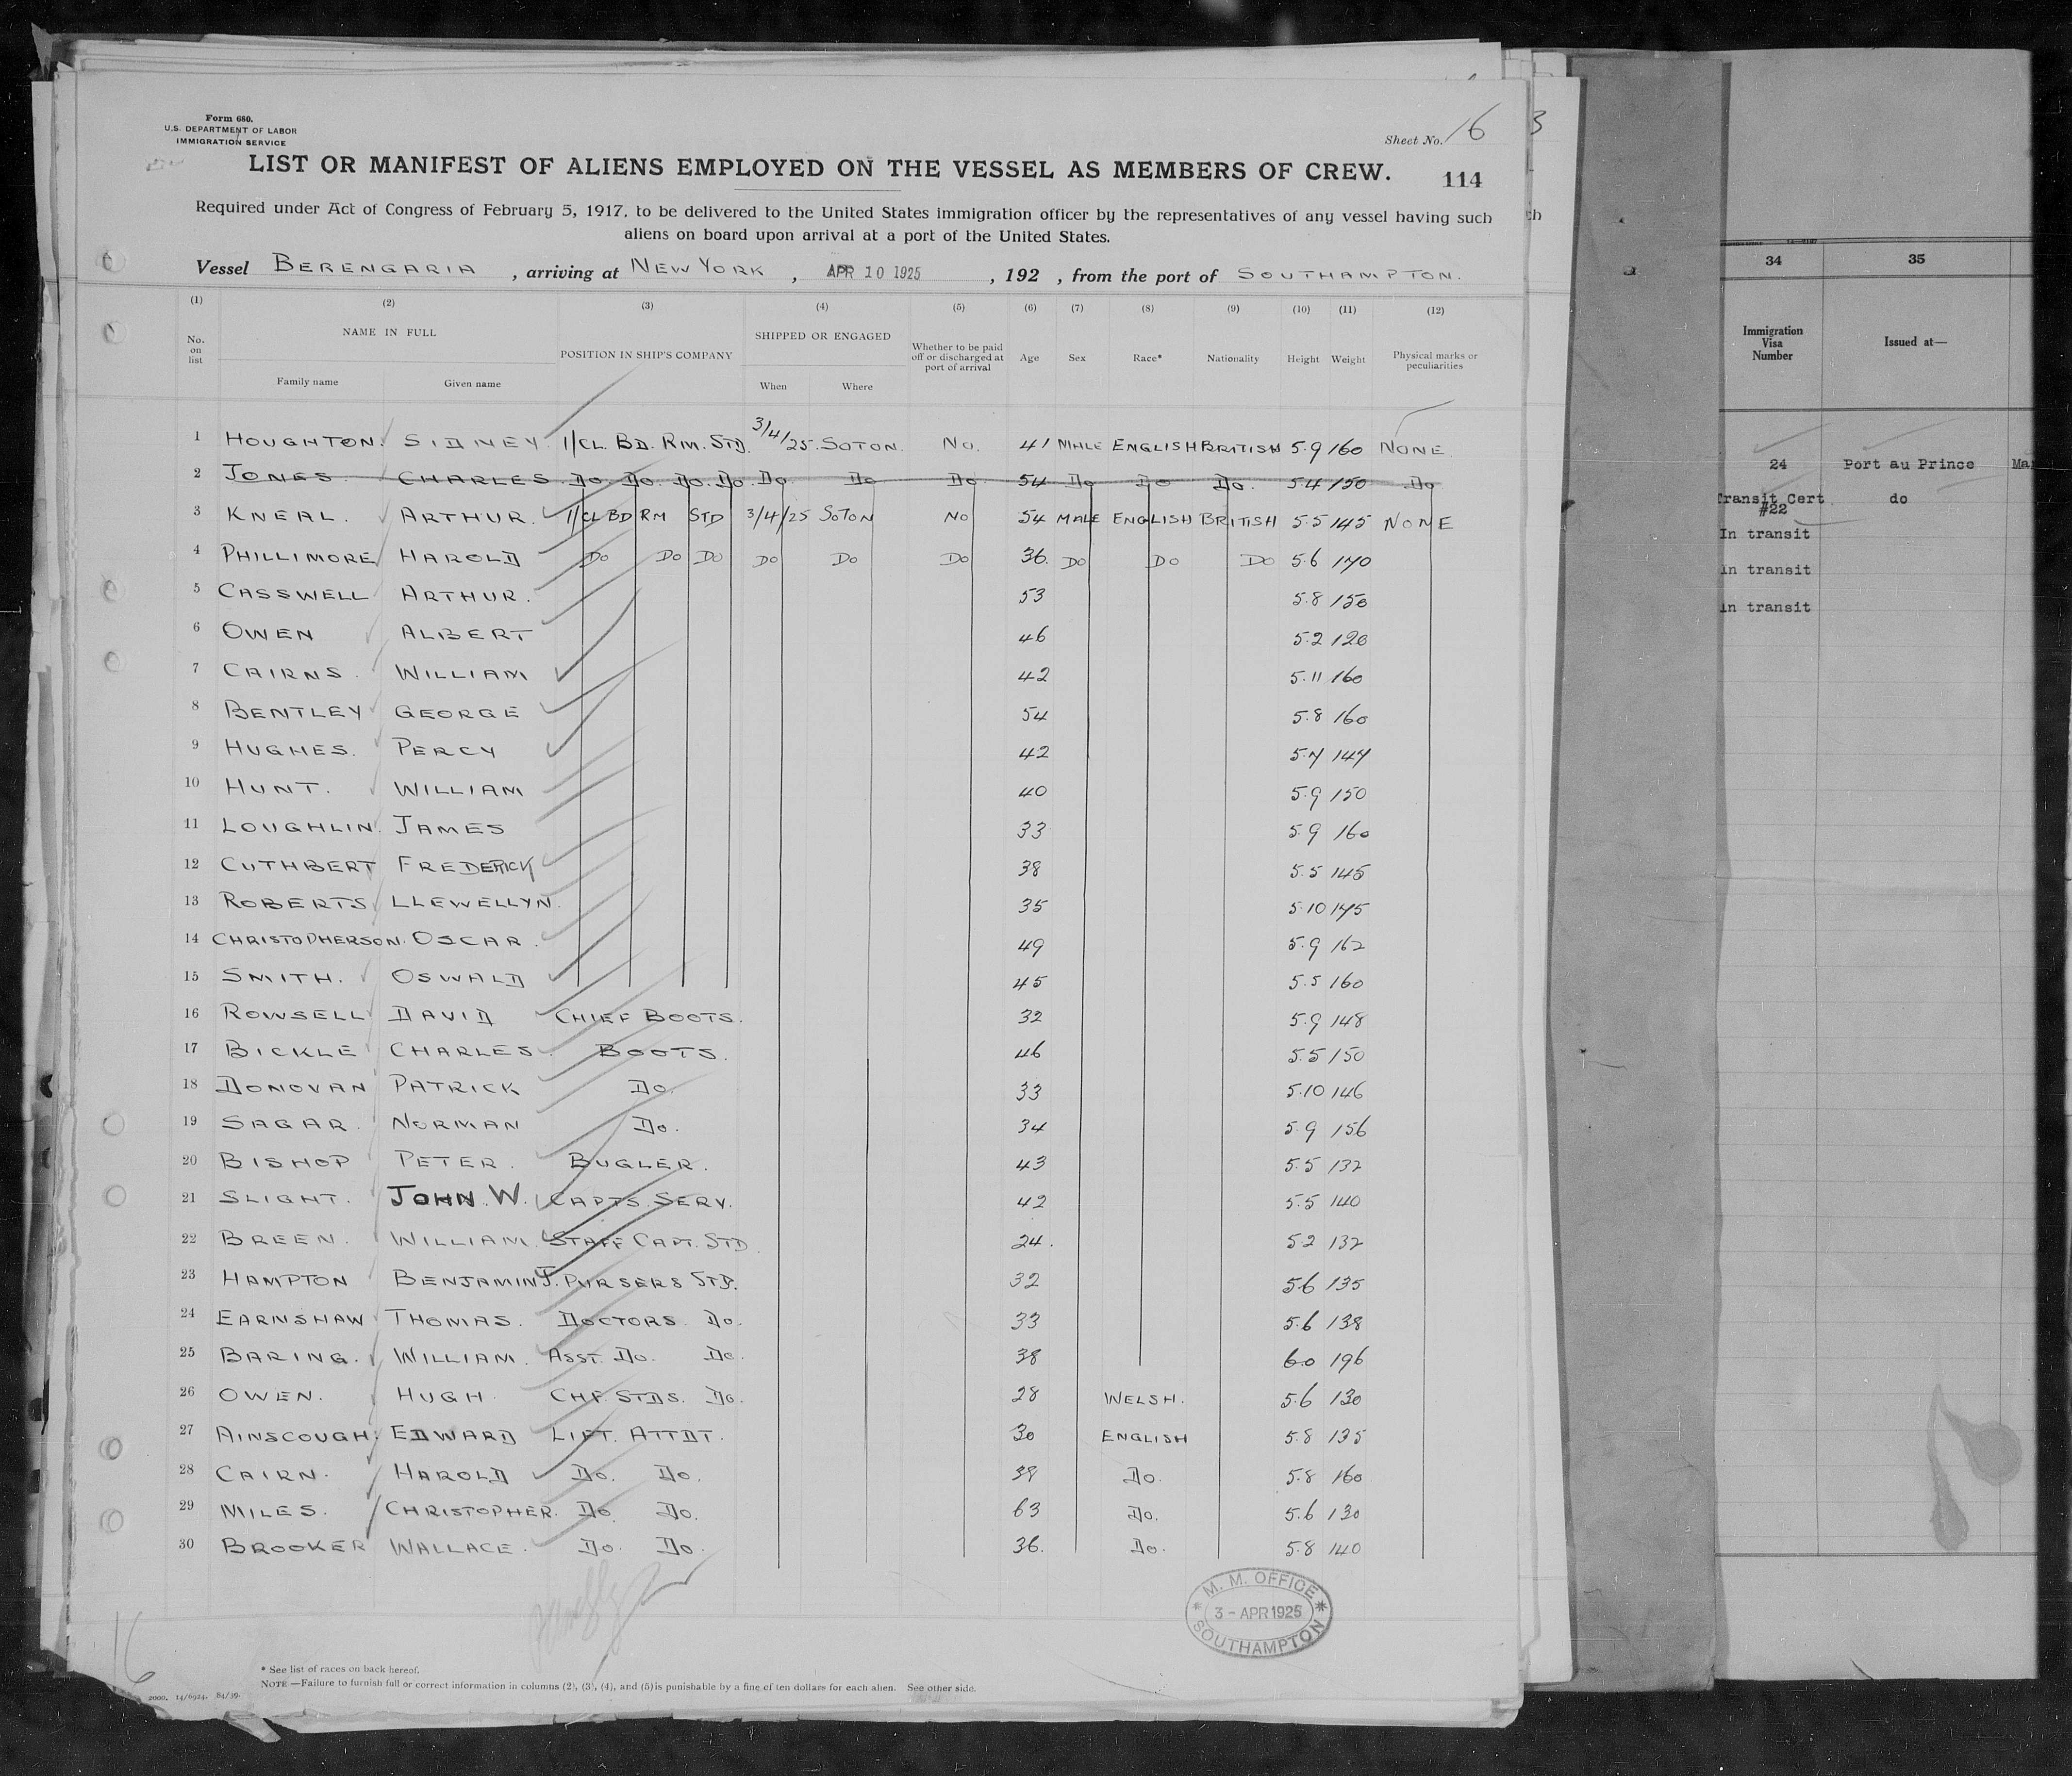 Form 680.
U.S. DEPARTMENT OF LABOR
IMMIGRATION SERVICE
Sheet No. 16
3
LIST OR MANIFEST OF ALIENS EMPLOYED ON THE VESSEL AS MEMBERS OF CREW. 114
Required under Act of Congress of February 5, 1917, to be delivered to the United States immigration officer by the representatives of any vessel having such
aliens on board upon arrival at a port of the United States.
Vessel BERENGARIA, arriving at NEW YORK, APR 10 1925, 192 , from the port of SOUTHAMPTON.
(1) (2) (3) (4) (5) (6) (7) (8) (9) (10) (11) (12)
No. on list NAME IN FULL Family name Given name POSITION IN SHIP'S COMPANY SHIPPED OR ENGAGED When Where Whether to be paid off or discharged at port of arrival Age Sex Race* Nationality Height Weight Physical marks or peculiarities
1 HOUGHTON. SIDNEY 1/CL. BD. RM. STD. 3/4/25. SOTON. No. 41 MALE ENGLISH BRITISH 5.9 160 NONE
2 JONES CHARLES DO. DO. DO. DO. DO DO DO 54 DO DO DO. 5.4 150 DO
3 KNEAL. ARTHUR. 1/CL BD RM STD 3/4/25 SOTON NO 54 MALE ENGLISH BRITISH 5.5 145 NONE
4 PHILLIMORE HAROLD DO DO DO DO DO DO 36. DO DO DO 5.6 170
5 CASSWELL ARTHUR. 53 5.8 150
6 OWEN ALBERT 46 5.2 120
7 CAIRNS. WILLIAM 42 5.11 160
8 BENTLEY GEORGE 54 5.8 160
9 HUGHES. PERCY 42 5.7 147
10 HUNT. WILLIAM 40 5.9 150
11 LOUGHLIN. JAMES 33 5.9 160
12 CUTHBERT FREDERICK 38 5.5 145
13 ROBERTS LLEWELLYN. 35 5.10 175
14 CHRISTOPHERSON. OSCAR. 49 5.9 162
15 SMITH. OSWALD 45 5.5 160
16 ROWSELL DAVID CHIEF BOOTS. 32 5.9 148
17 BICKLE CHARLES. BOOTS. 46 5.5 150
18 DONOVAN PATRICK DO. 33 5.10 146
19 SAGAR. NORMAN DO. 34 5.9 156
20 BISHOP PETER. BUGLER. 43 5.5 132
21 SLIGHT. JOHN. W. CAPTS. SERV. 42 5.5 140
22 BREEN. WILLIAM. STAFF CAPT. STD. 24. 5.2 132
23 HAMPTON BENJAMIN J. PURSERS STD. 32 5.6 135
24 EARNSHAW THOMAS. DOCTORS. DO. 33 5.6 138
25 BARING. WILLIAM. ASST. DO. DO. 38 6.0 196
26 OWEN. HUGH. CHF. STDS. DO. 28 WELSH. 5.6 130
27 AINSCOUGH. EDWARD LIFT. ATTDT. 30 ENGLISH 5.8 135
28 CAIRN. HAROLD DO. DO. DO. 5.8 160
29 MILES. CHRISTOPHER. DO. DO. 63 DO. 5.6 130
30 BROOKER WALLACE. DO. DO. 36. DO. 5.8 140
M. M. OFFICE
3 - APR 1925
SOUTHAMPTON
16
* See list of races on back hereof.
NOTE.—Failure to furnish full or correct information in columns (2), (3), (4), and (5) is punishable by a fine of ten dollars for each alien. See other side.
2000. 14/6924. 84/39.
34 35
Immigration Visa Number Issued at—
24 Port au Prince Ma
Transit Cert #22 do
In transit
In transit
In transit